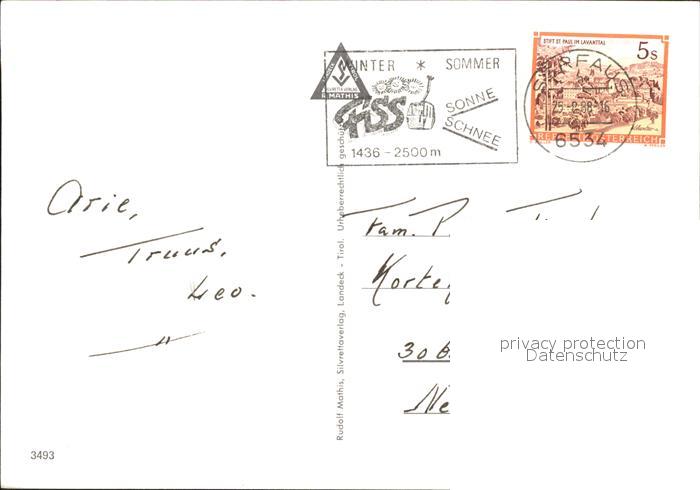 WINTER * SOMMER
R. MATHIS
FISS
SONNE
SCHNEE
1436 - 2500 m
STIFT ST. PAUL IM LAVANTTAL
5s
SERFAUS
25.-2.88-16
6534
REPUBLIK ÖSTERREICH
Arie,
Truus,
Leo.
Fam. P
Korte
30 B.
Ne
privacy protection
Datenschutz
Rudolf Mathis, Silvrettaverlag, Landeck - Tirol. Urheberrechtlich geschü
3493